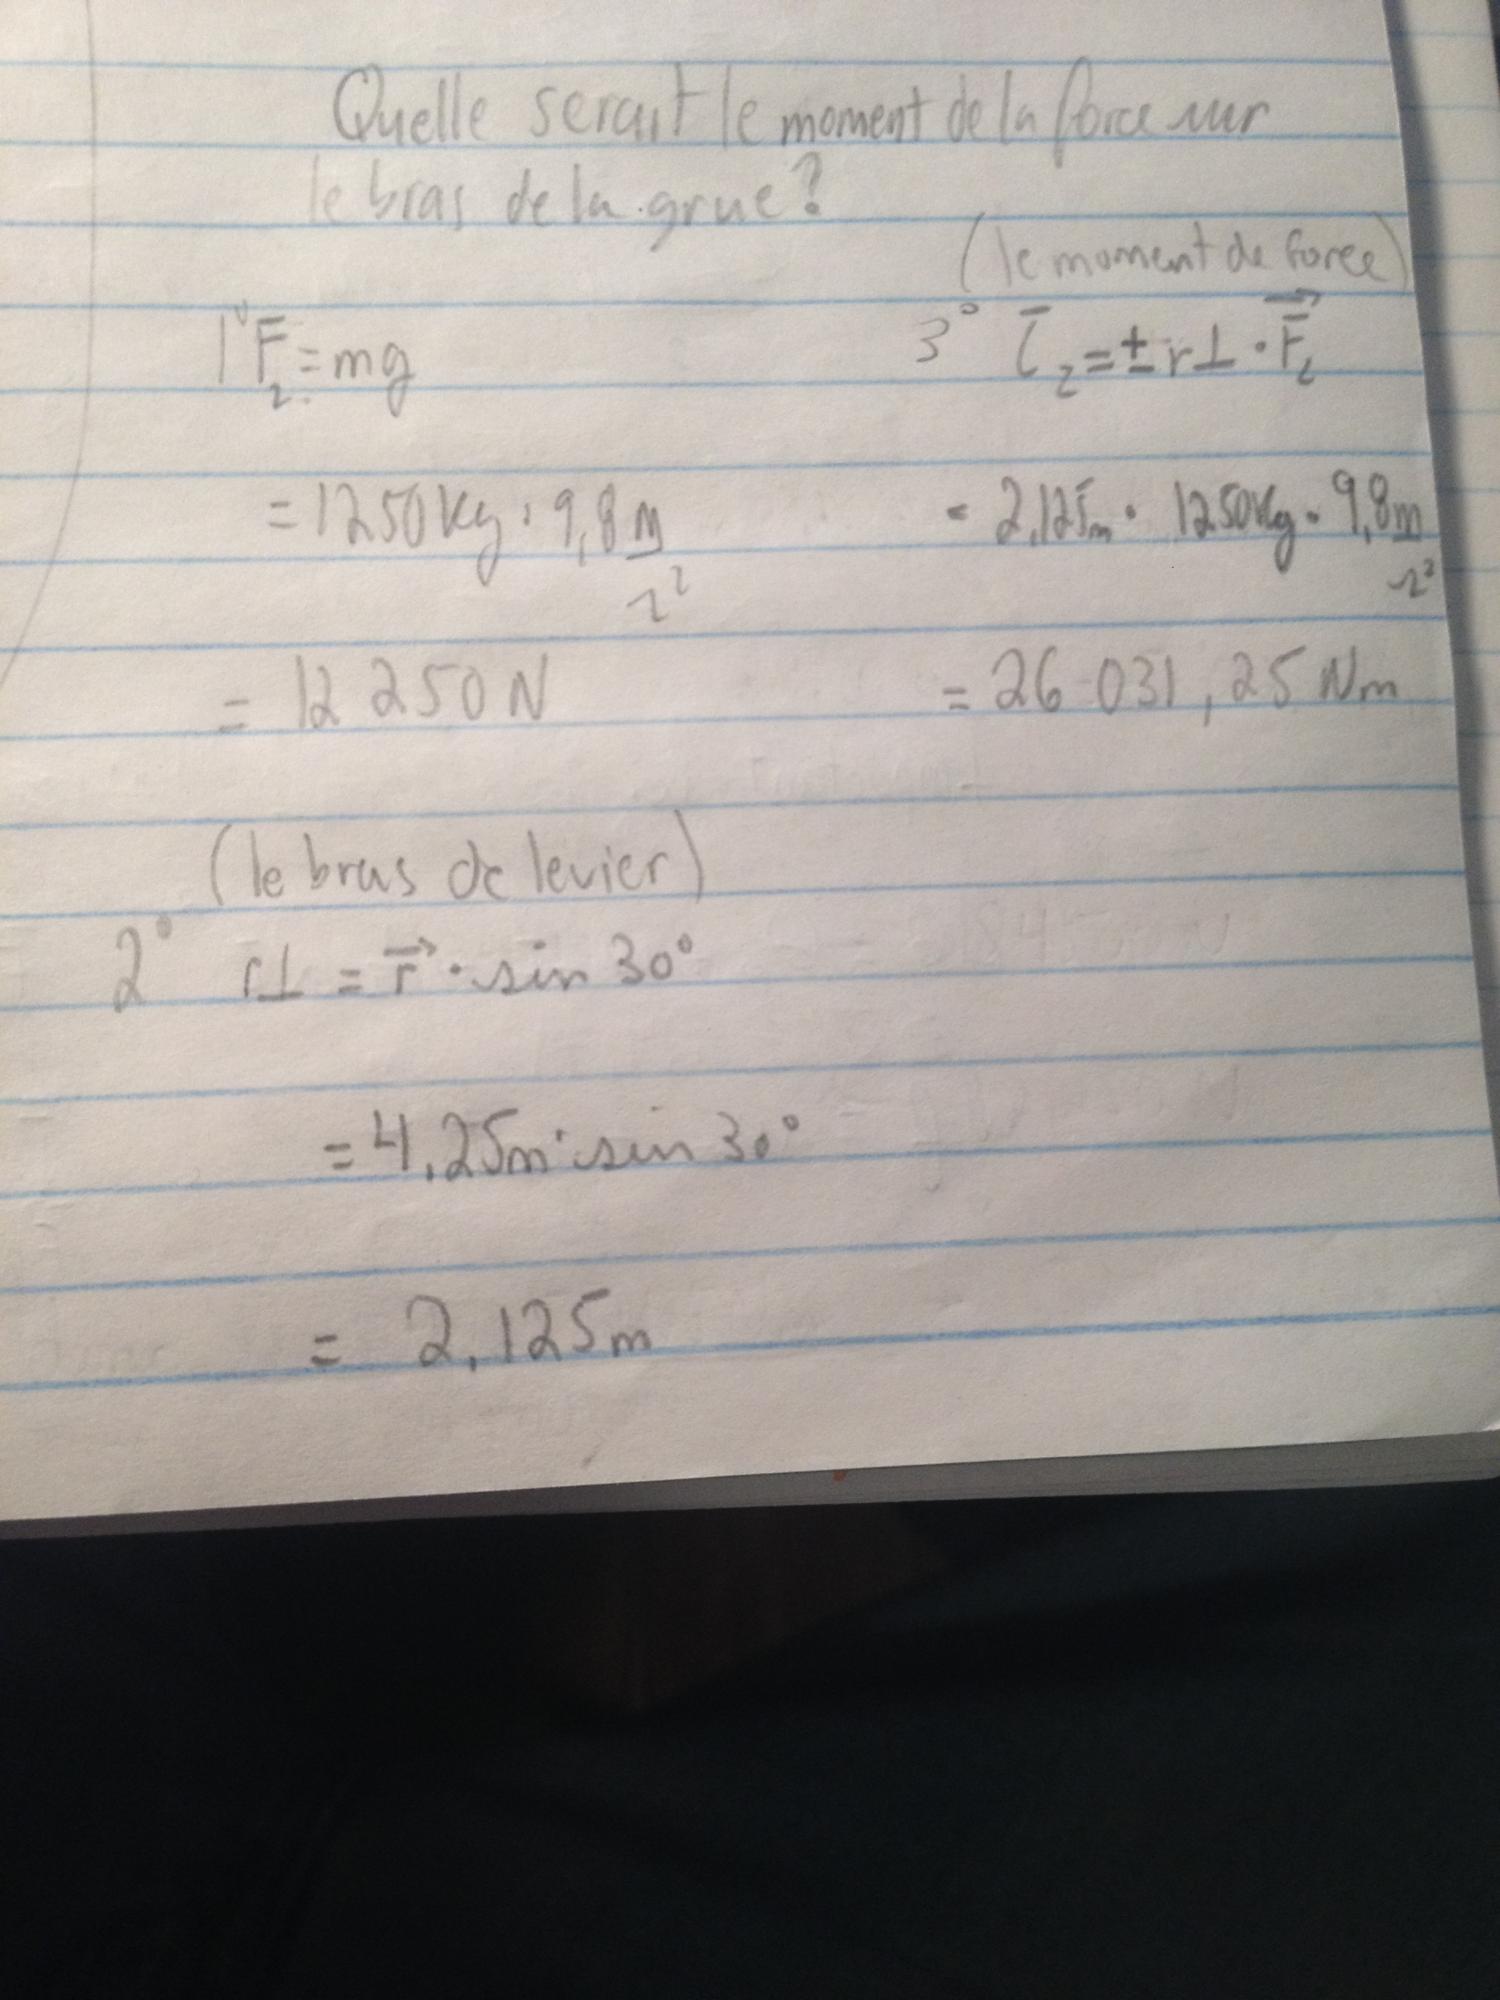 Quelle serait le moment de la force sur
le bras de la grue?
1° F₂ = mg
= 1250 kg · 9,8 m/s²
= 12 250 N
(le bras de levier)
2° r⊥ = r⃗ · sin 30°
= 4,25m · sin 30°
= 2,125m
(le moment de force)
3° τ₂ = ± r⊥ · F⃗₂
= 2,125m · 1250kg · 9,8 m/s²
= 26 031,25 Nm